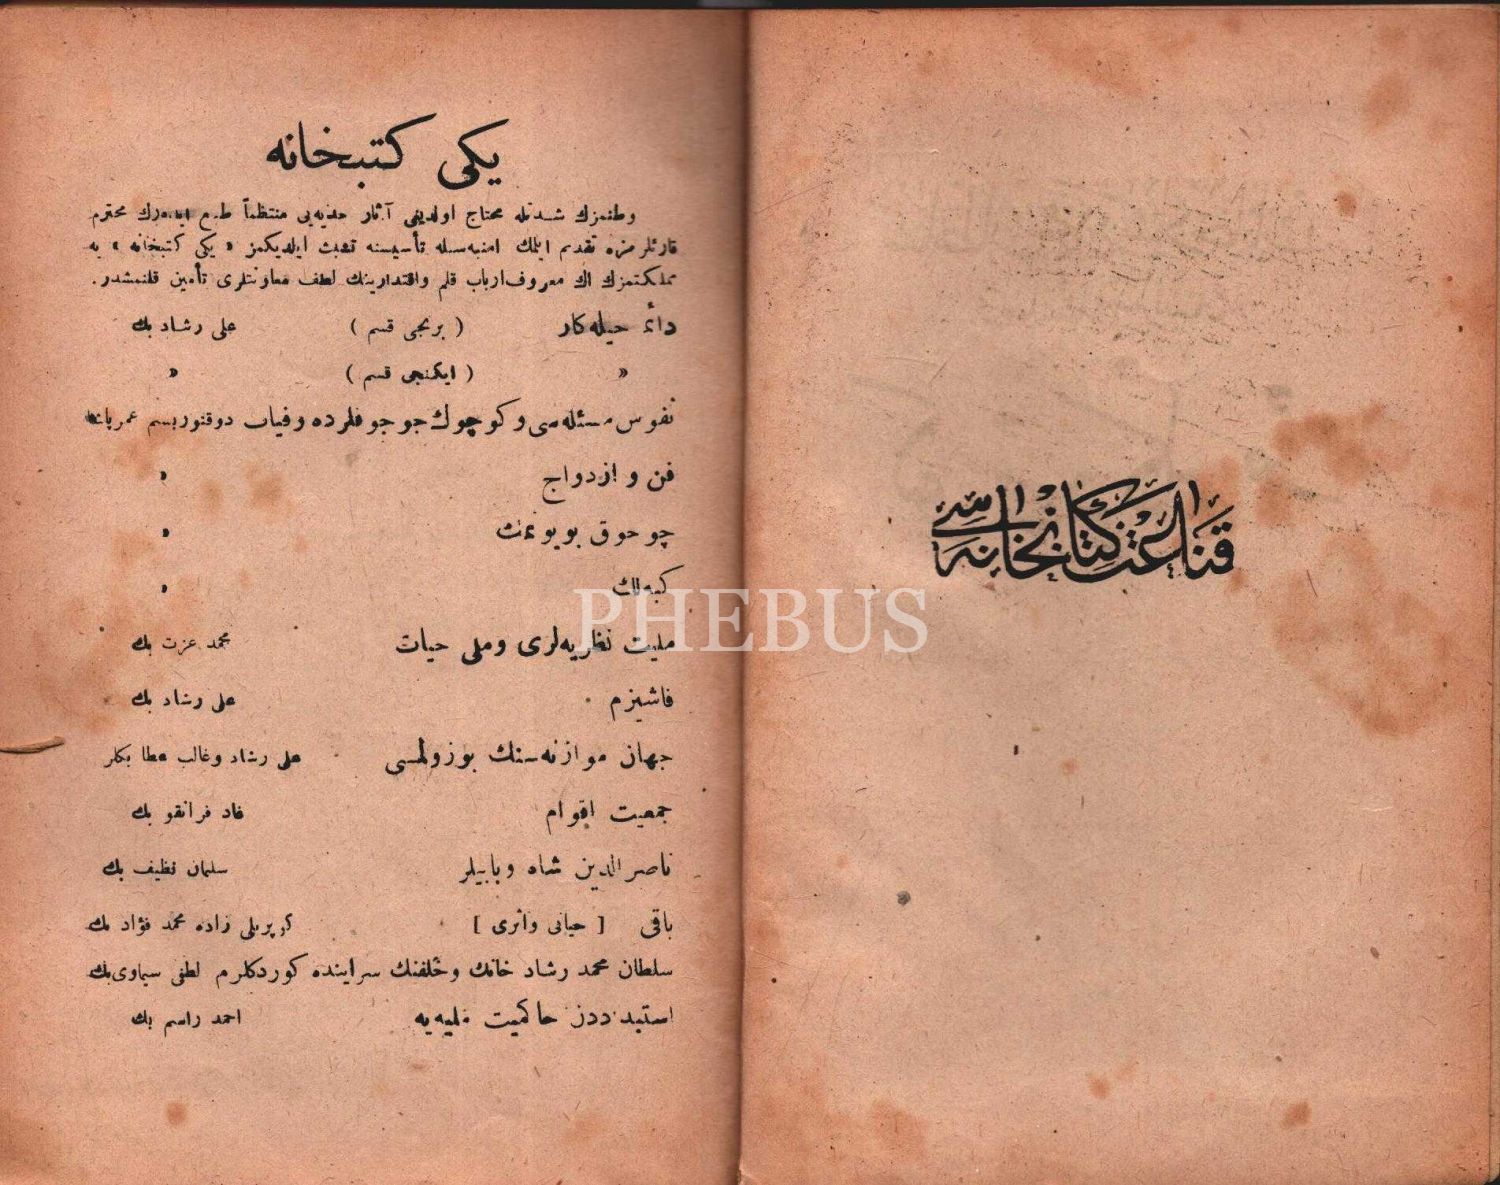 یکی کتبخانه
وطنمزك شدتله محتاج اولدیغی آثار جدیه‌یی منتظماً طبع ایده‌رك محترم
قارئلرمزه تقدیم ایلمك امنیه‌سیله تأسیسنه تشبث ایلدیکمز « یکی کتبخانه » یه
مملکتمزك اك معروف ارباب قلم واقتدارینك لطف معاونتلری تأمین قلنمشدر.
دائمـ حیله‌کار ( برنجی قسم ) علی رشاد بك
» ( ایکنجی قسم ) »
نفوس مسئله‌سی و کوچوك چوجوقلرده وفیات دوقتور بسیم عمر پاشا
فن و ازدواج »
چوجوق بویوتمك »
کبه‌لك »
ملیت نظریه‌لری وملی حیات محمد عزت بك
فاشیزم علی رشاد بك
جهان موازنه‌سنك بوزولمسی علی رشاد وغالب عطا بکلر
جمعیت اقوام فرانقو بك
ناصرالدین شاه وبابیلر سلیمان نظیف بك
باقی [ حیاتی واثری ] کوپریلی زاده محمد فؤاد بك
سلطان محمد رشاد خانك وخلفنك سراینده کوردکلرم لطفی سیماوی بك
استبداددن حاکمیت ملیه‌یه احمد راسم بك
قناعت کتابخانه‌سی
PHEBUS